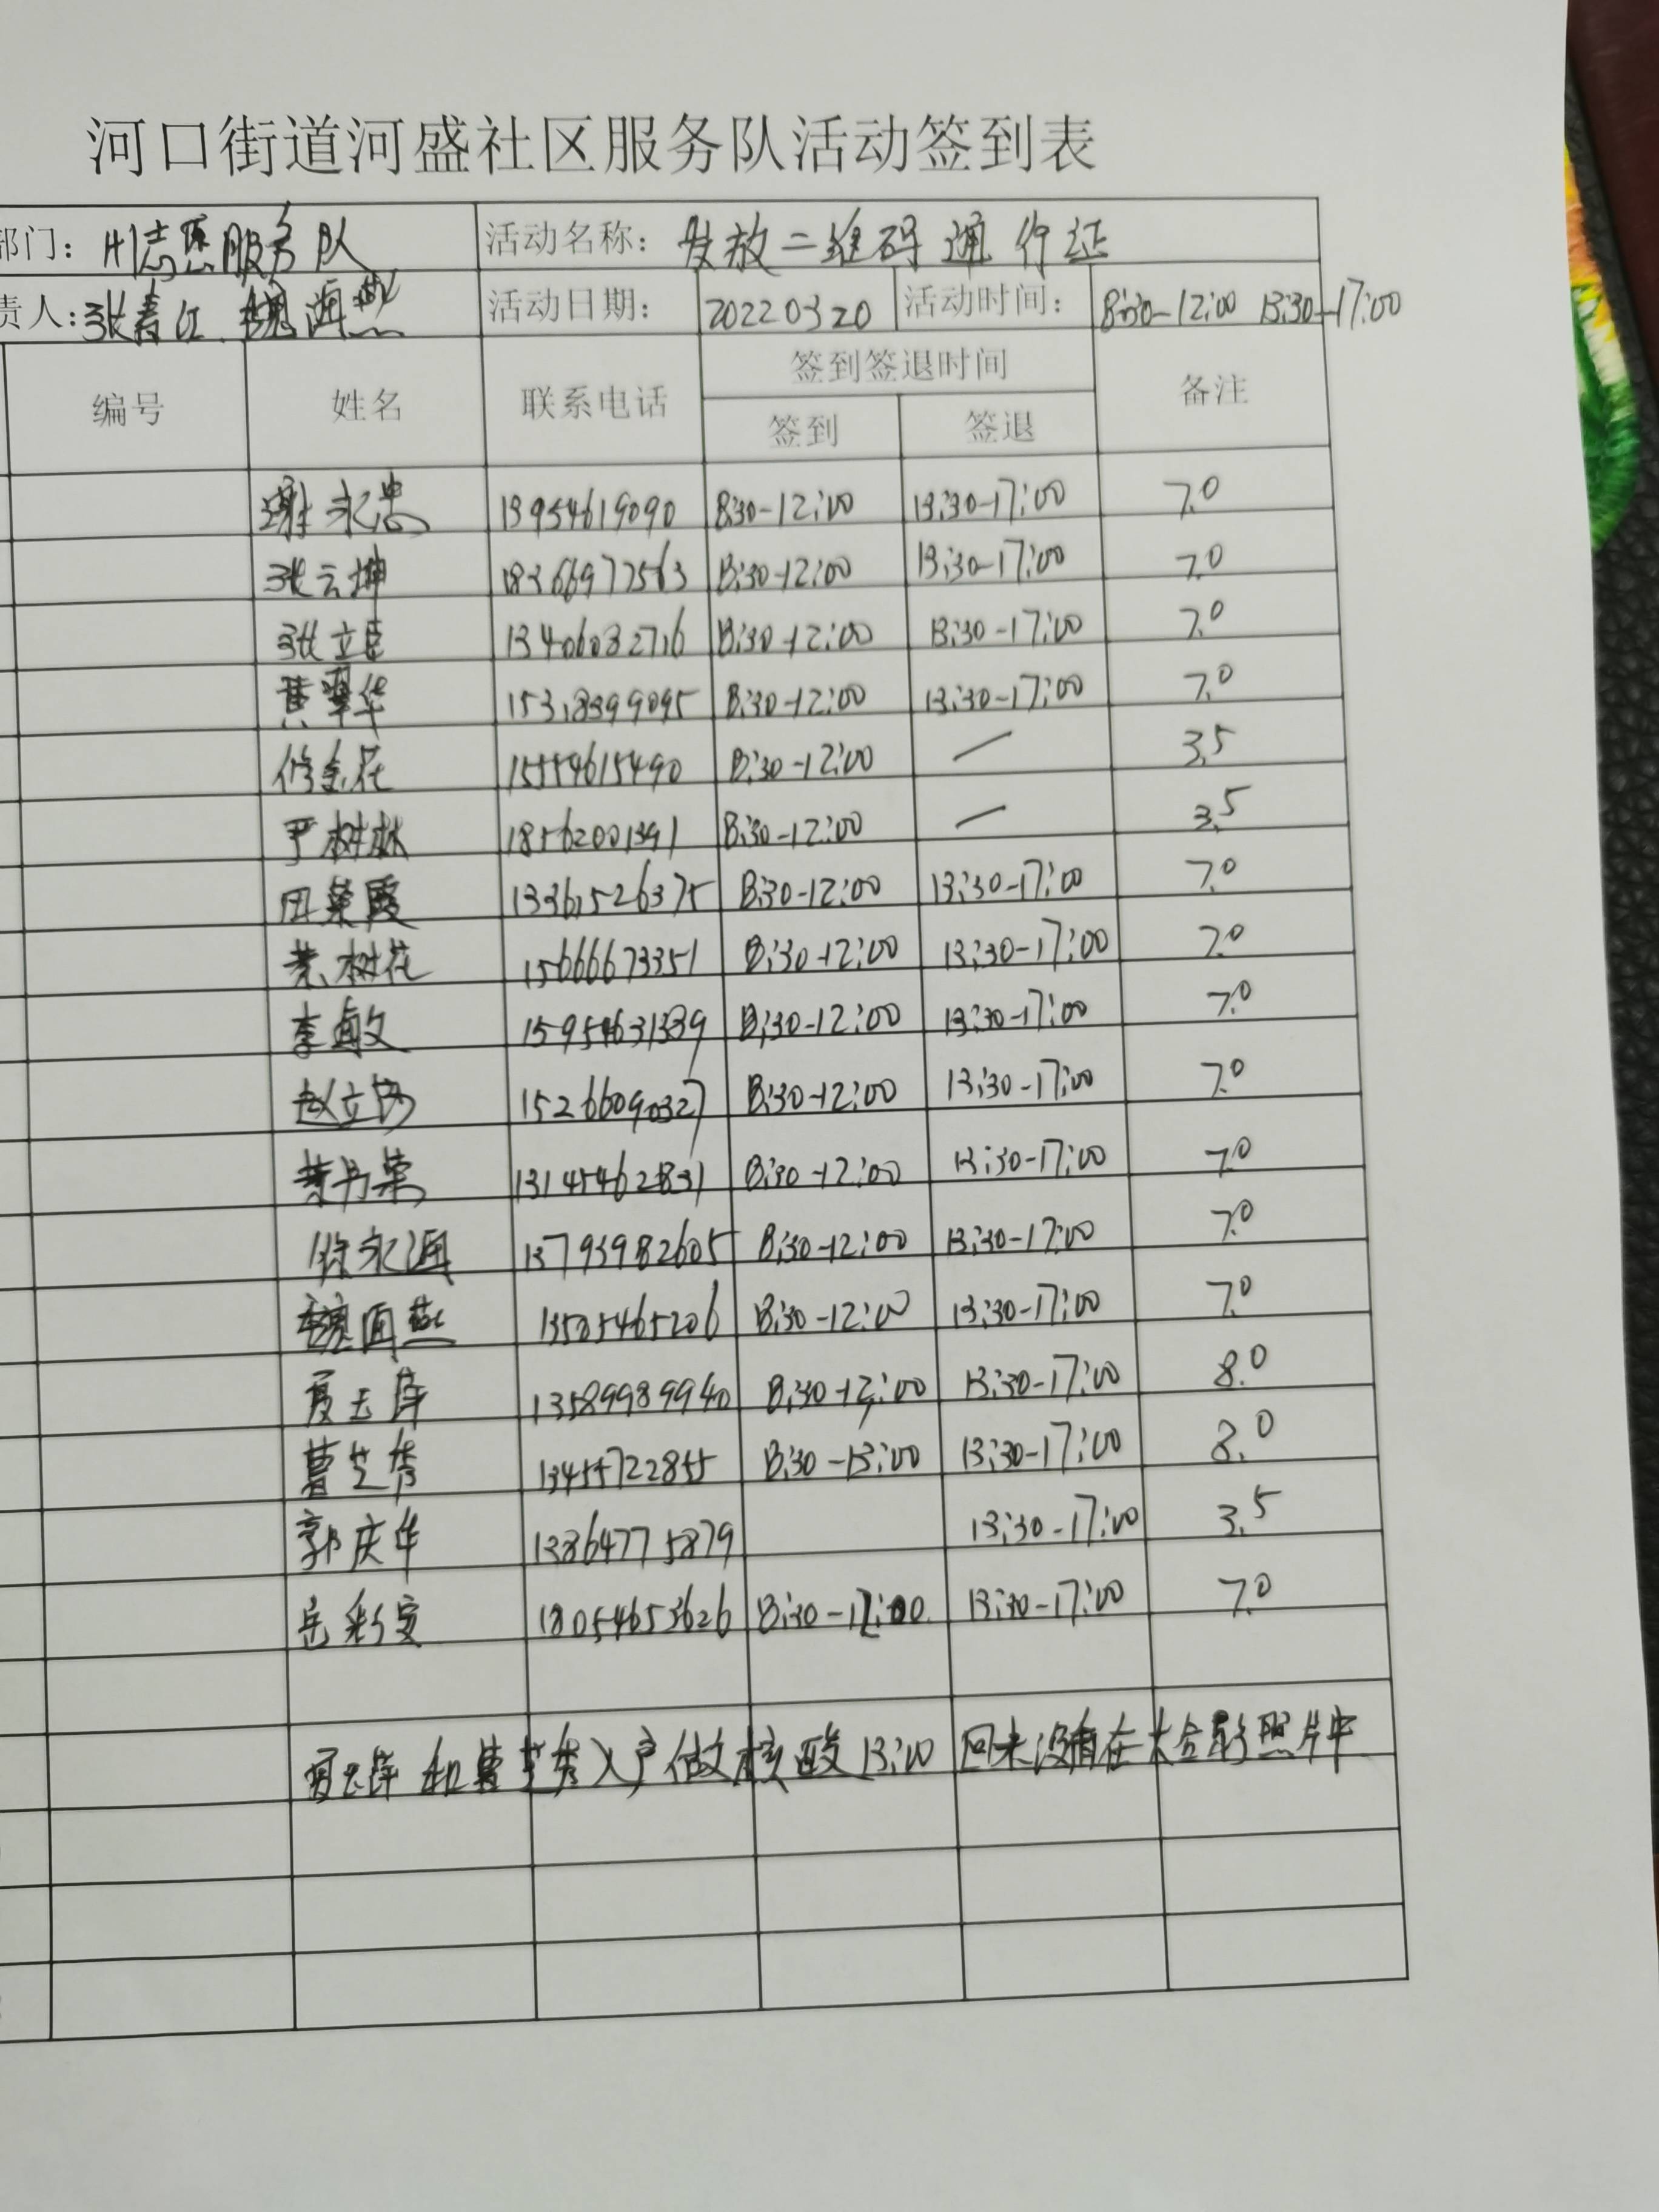 河口街道河盛社区服务队活动签到表
部门: 志愿服务队 活动名称: 发放二维码通行证
责人: 张春江 魏洄燕 活动日期: 20220320 活动时间: 8:30-12:00 13:30-17:00
编号 姓名 联系电话 签到签退时间 备注
签到 签退
谢永忠 13954619090 8:30-12:00 13:30-17:00 7.0
张云坤 18366977563 8:30-12:00 13:30-17:00 7.0
张立臣 13406082716 8:30-12:00 13:30-17:00 7.0
黄翠华 15318399095 8:30-12:00 13:30-17:00 7.0
修金花 15554615490 8:30-12:00 — 3.5
尹树林 18562001391 8:30-12:00 — 3.5
田荣霞 13361526375 8:30-12:00 13:30-17:00 7.0
树花 15666673351 8:30-12:00 13:30-17:00 7.0
李敏 15954631339 8:30-12:00 13:30-17:00 7.0
赵立 15266090327 8:30-12:00 13:30-17:00 7.0
13145462831 8:30-12:00 13:30-17:00 7.0
徐永通 13793982605 8:30-12:00 13:30-17:00 7.0
魏洄燕 13505465206 8:30-12:00 13:30-17:00 7.0
夏玉萍 13589989940 8:30-12:00 13:30-17:00 8.0
曹芝秀 13455722855 8:30-13:00 13:30-17:00 8.0
郭庆华 13864775879 13:30-17:00 3.5
岳彩安 18054653626 8:30-12:00 13:30-17:00 7.0
夏玉萍和曹芝秀入户做核酸13:00回来没有在大合影照片中